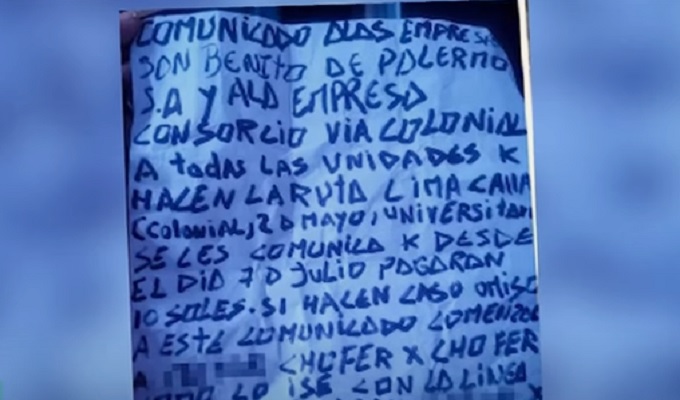 COMUNICADO ALAS EMPRESAS
SAN BENITO DE PALERMO
S.A Y ALA EMPRESA
CONSORCIO VIA COLONIAL
A todas LAS UNIDADES K
HACEN LA RUTA LIMA CALLA
(COLONIAL, 2 D MAYO, UNIVERSITARI
SE LES COMUNICA K DESDE
EL DIA 7 D JULIO PAGARAN
10 SOLES. SI HACEN CASO OMISO
A ESTE COMUNICADO COMENZO
A CHOFER X CHOFER
LO ISE CON LA LINEA